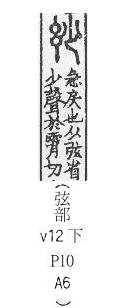 玅
急戾也从弦省
少聲於霄切
(弦部
v12下
P10
A6)